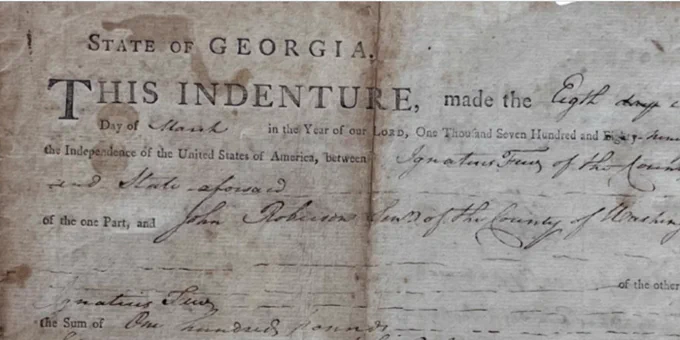 STATE OF GEORGIA.
THIS INDENTURE, made the Eigth
Day of March in the Year of our LORD, One Thousand Seven Hundred and
the Independence of the United States of America, between Ignatius Few of the
and State aforsaid
of the one Part, and John Roberson of the County of
of the other
Ignatius Few
the Sum of One hundred pounds